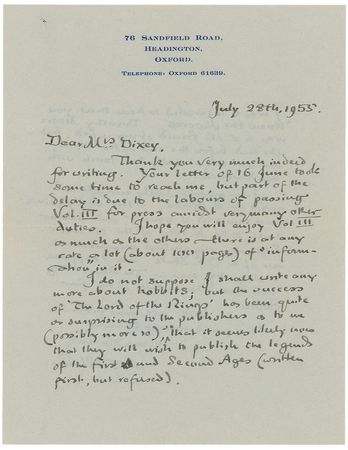 76 SANDFIELD ROAD,
HEADINGTON,
OXFORD.
TELEPHONE: OXFORD 61639.
July 28th, 1955.
Dear Mrs Dixey,
Thank you very much indeed
for writing. Your letter of 16 June took
some time to reach me, but part of the
delay is due to the labours of passing
Vol. III for press amidst very many other
duties. I hope you will enjoy Vol III
as much as the others – there is at any
rate a lot (about 100 pages) of "inform-
ation" in it.
I do not suppose I shall write any
more about hobbits; but the success
of 'The Lord of the Rings' has been quite
as surprising to the publishers as to me
(possibly more so), that it seems likely now
that they will wish to publish the legends
of the First and Second Ages (written
first, but refused).